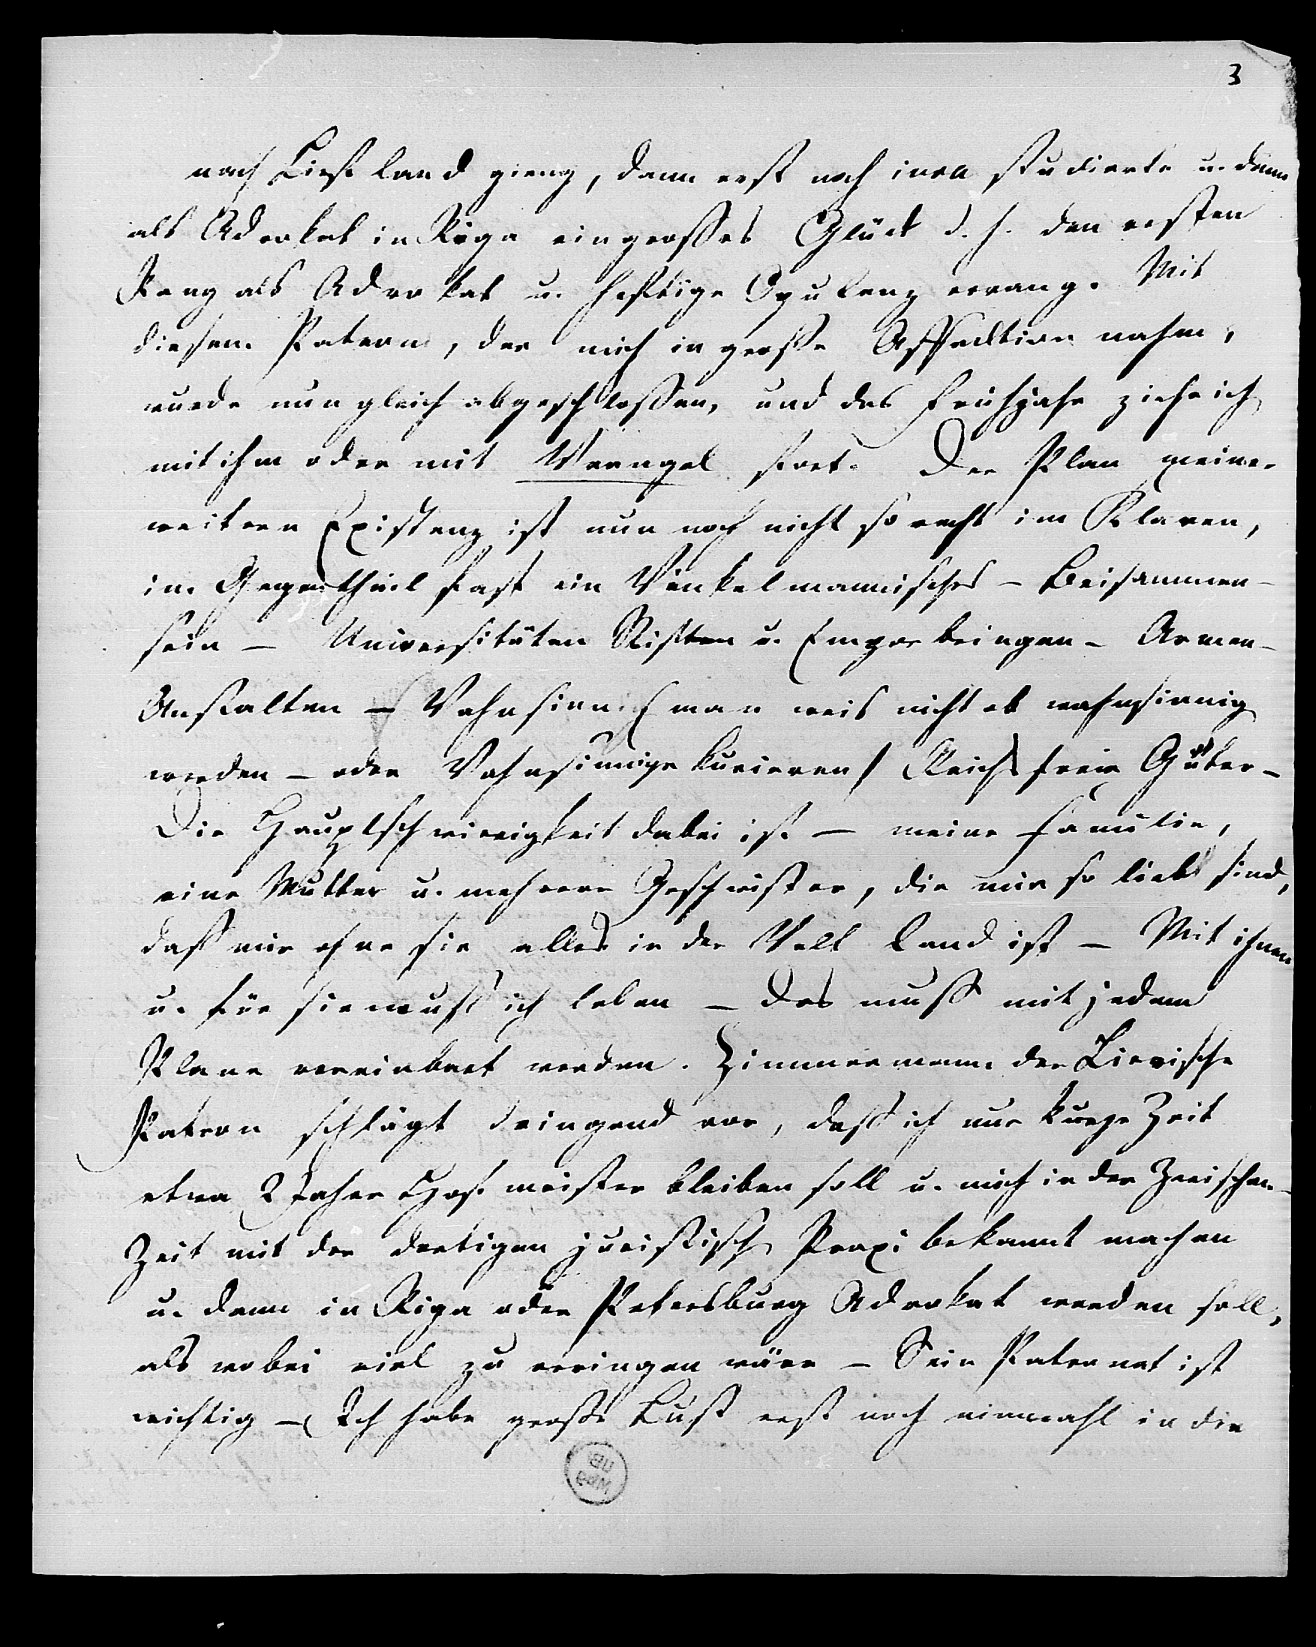 3
nach Liefland gieng, dann erst noch iura studierte u. dann
als Advokat in Riga ein grosses Glück d. h. den ersten
Rang als Advokat u. heftige Opulenz errang. Mit
diesem Patron, der mich in große Affecktion nahm,
wurde nun gleich abgeschlossen, und das Frühjahr ziehe ich
mit ihm oder mit Wrangel fort. Der Plan meiner
weitern Existenz ist nun noch nicht so recht im Klaren,
im Gegentheil fast ein Winkelmannisches – Beisammen-
sein – Universitäten Stiften u. Emporbringen – Armen-
Anstalten – Wahnsinn (man weis nicht ob wahnsinnig
werden – oder Wahnsinnige kurieren) Reichsfreie Güter –
Die Hauptschwierigkeit dabei ist – meine Familie,
eine Mutter u. mehrere Geschwister, die mir so lieb sind,
daß mir ohne sie alles in der Welt Tand ist – Mit ihnen
u. für sie muß ich leben – Das muß mit jedem
Plane vereinbart werden. Zimmermann der Lievische
Patron schlägt dringend vor, daß ich nur kurze Zeit
etwa 2 Jahre Hofmeister bleiben soll u. mich in der Zwischen-
Zeit mit der dortigen juristisch Praxi bekannt machen
u. dann in Riga oder Petersburg Advokat werden soll,
als wobei viel zu erringen wäre – Sein Patronat ist
wichtig – Ich habe große Lust erst noch einmahl in die